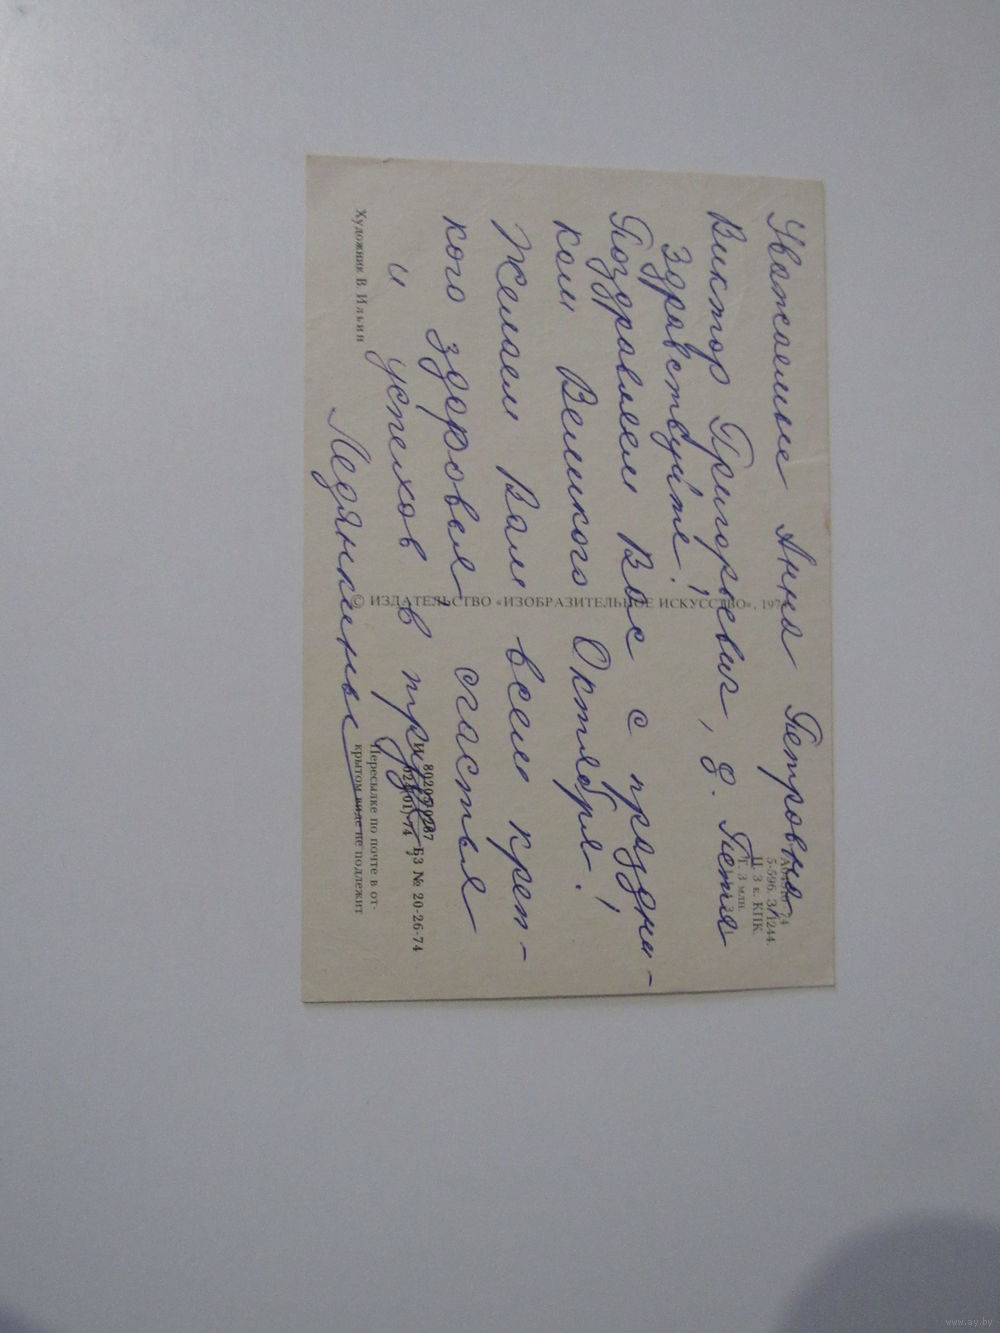 Уважаемые Анна Петровна
Виктор Григорьевич, д. Петя
Здравствуйте!
Поздравляем Вас с праздни-
ком Великого Октября!
Желаем Вам всем креп-
кого здоровья, счастья
и успехов в труде.
Ледянкины
Художник В. Ильин
© ИЗДАТЕЛЬСТВО «ИЗОБРАЗИТЕЛЬНОЕ ИСКУССТВО», 197
5-596. З/1244.
Ц. 3 к. КПК.
Т. 3 млн.
И 80205-0287
024(01)-74 БЗ № 20-26-74
Пересылке по почте в от-
крытом виде не подлежит
www.ay.by